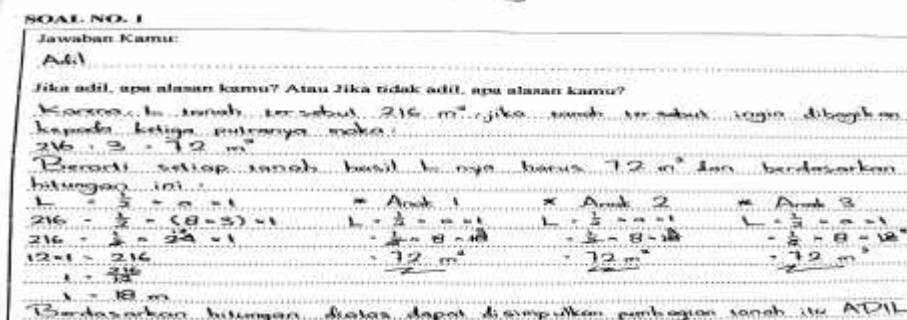 SOAL NO. 1
Jawaban Kamu:
Adil
Jika adil, apa alasan kamu? Atau Jika tidak adil, apa alasan kamu?
Karena L tanah tersebut 216 m², jika tanah tersebut ingin dibagikan
kepada ketiga putranya maka:
216 : 3 = 72 m²
Berarti setiap tanah hasil L nya harus 72 m² dan berdasarkan
hitungan ini :
L = ½ × a × t * Anak 1 * Anak 2 * Anak 3
216 = ½ × (8×3) × t L = ½ × a × t L = ½ × a × t L = ½ × a × t
216 = ½ × 24 × t = ½ × 8 × 18 = ½ × 8 × 18 = ½ × 8 × 18
12×t = 216 = 72 m² = 72 m² = 72 m²
t = 216/12
t = 18 m
Berdasarkan hitungan diatas dapat disimpulkan pembagian tanah itu ADIL